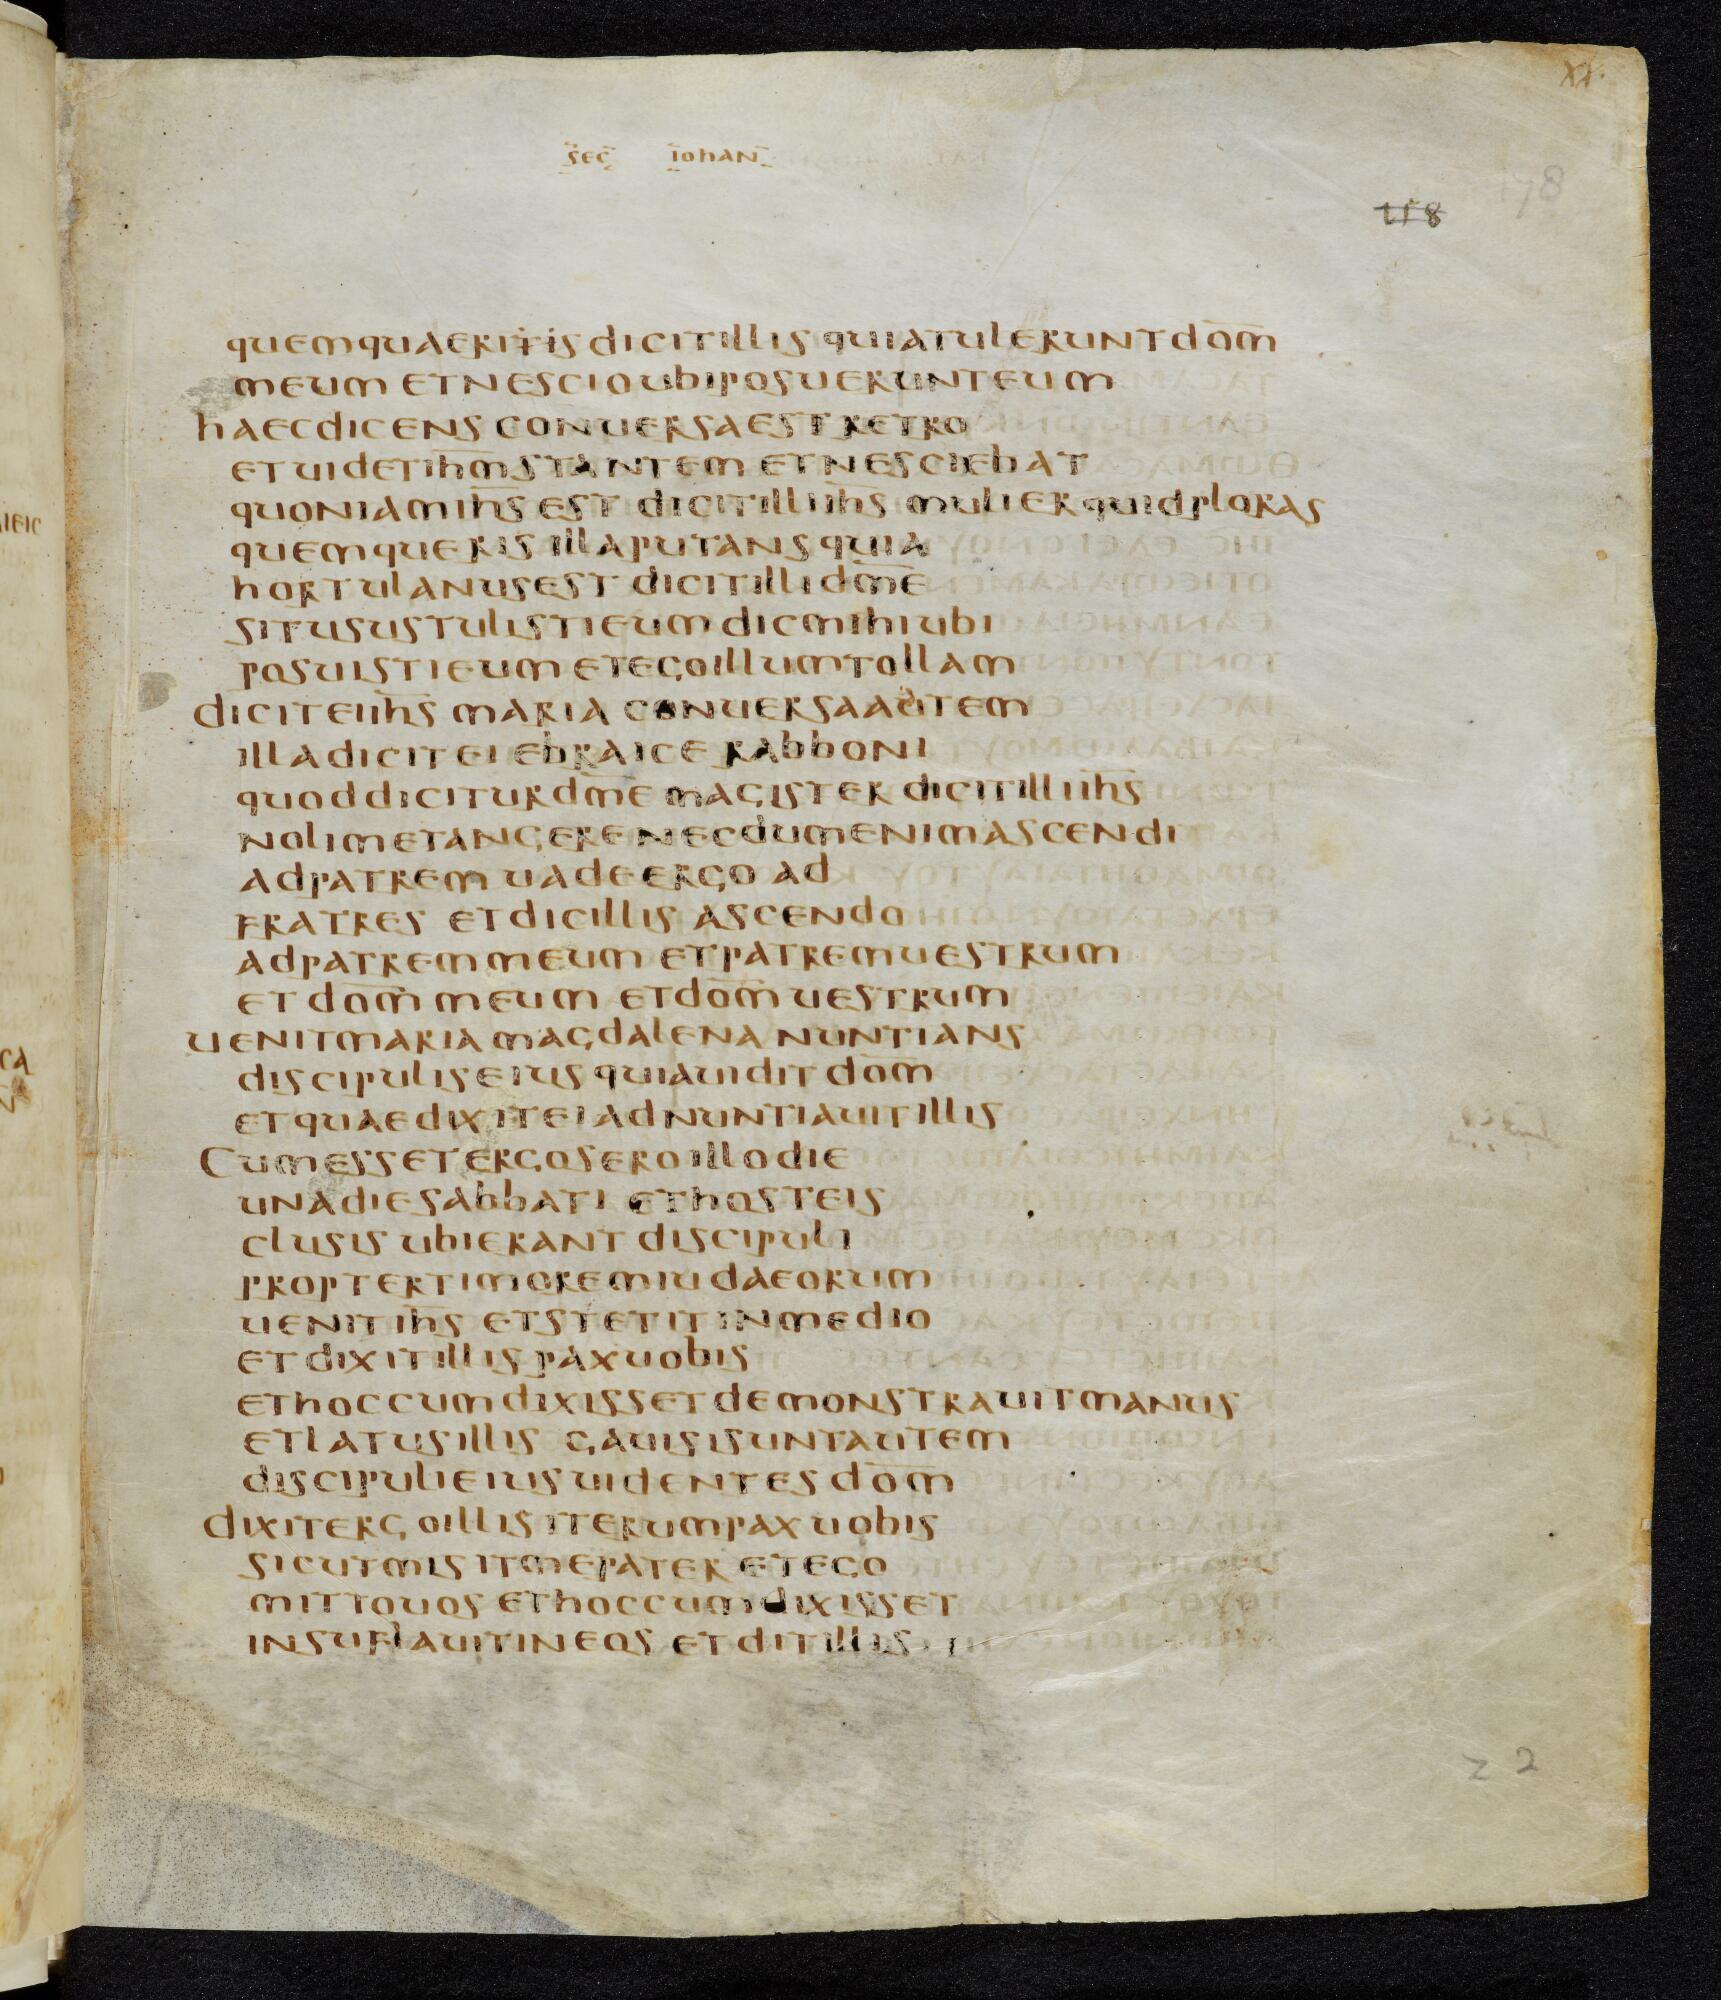 XX.
sec iohan
178
118
quemquaeritis dicitillis quiatulerunt dom̅
meum etnescioubiposuerunteum
haecdicens conuersaest retro
etuidetihm̅stantem etnesciebat
quoniamihs̅est dicitilliihs̅ mulierquidploras
quemqueris illaputansquia
hortulanusest dicitillidme̅
situsustulistieum dicmihiubi
posuistieum etegoillumtollam
diciteiihs̅ maria conuersaautem
illadicitei ebraice rabboni
quoddiciturdme̅ magister dicitilliihs̅
nolimetangere necdumenimascendi
adpatrem uadeergo ad
fratres etdicillis ascendo
adpatremmeum etpatremuestrum
et dom̅ meum etdom̅ uestrum
uenitmaria magdalena nuntians
discipuliseius quiauidit dom̅
etquaedixiteiadnuntiauitillis
Cumessetergoseroillodie
unadiesabbati ethosteis
clusis ubierant discipuli
proptertimoremiudaeorum
uenitihs̅ etstetit inmedio
etdixitillis paxuobis
ethoccumdixissetdemonstrauitmanus
etlatusillis gauisisuntautem
discipulieius uidentes dom̅
dixitergoillis iterumpaxuobis
sicutmisitmepater etego
mittouos ethoccumdixisset
insuflauitineos etditillis
z 2